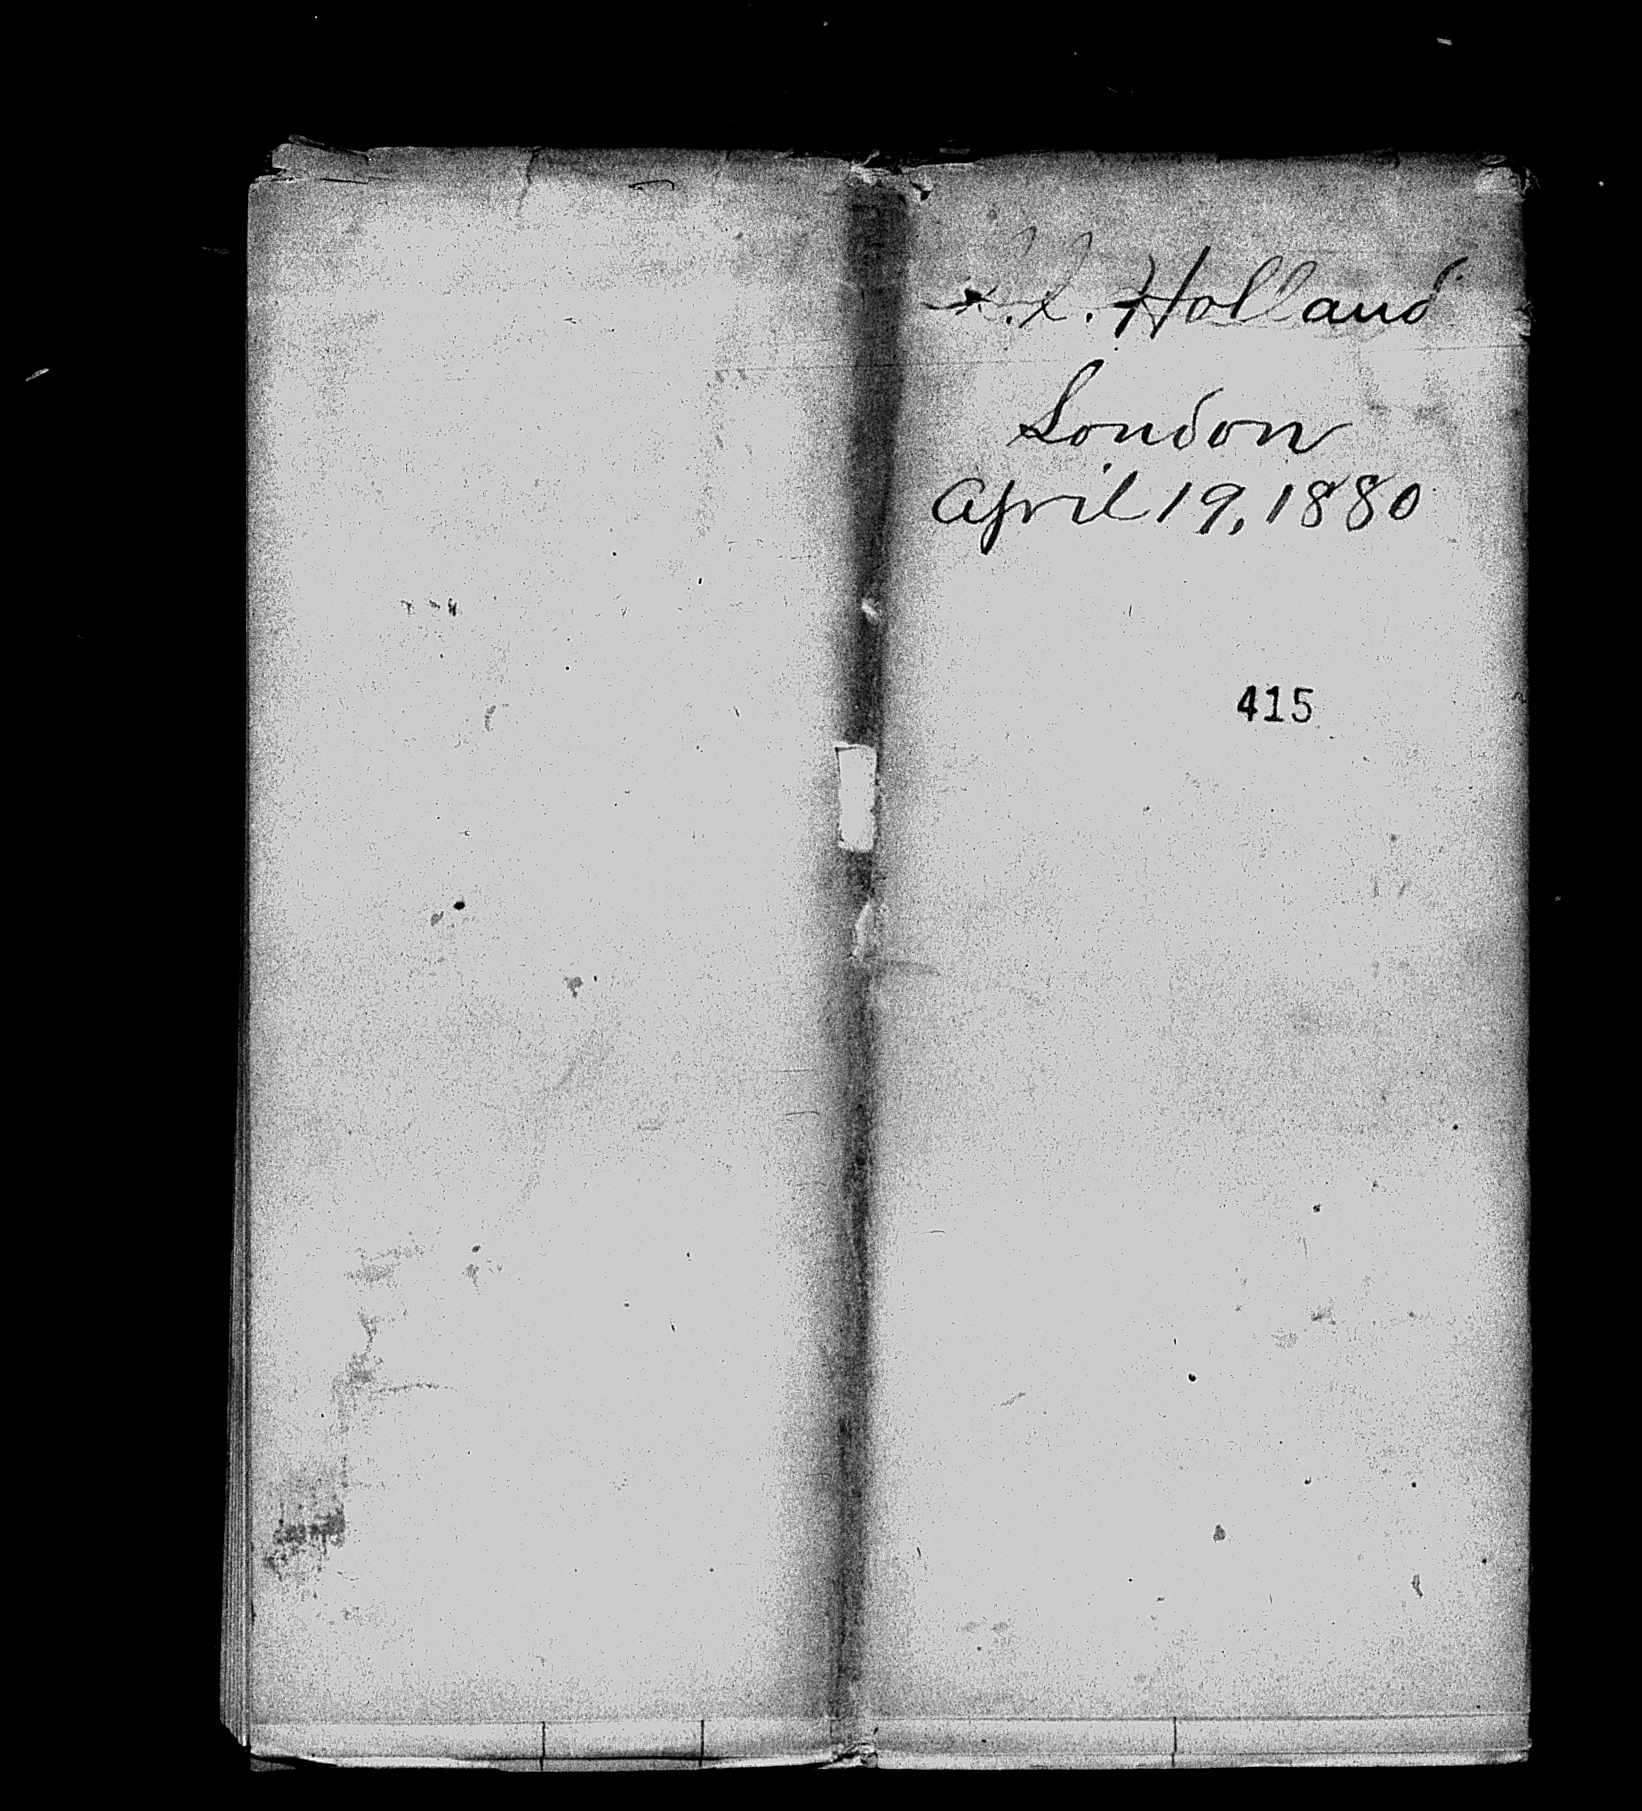 Holland
London
April 19, 1880
415